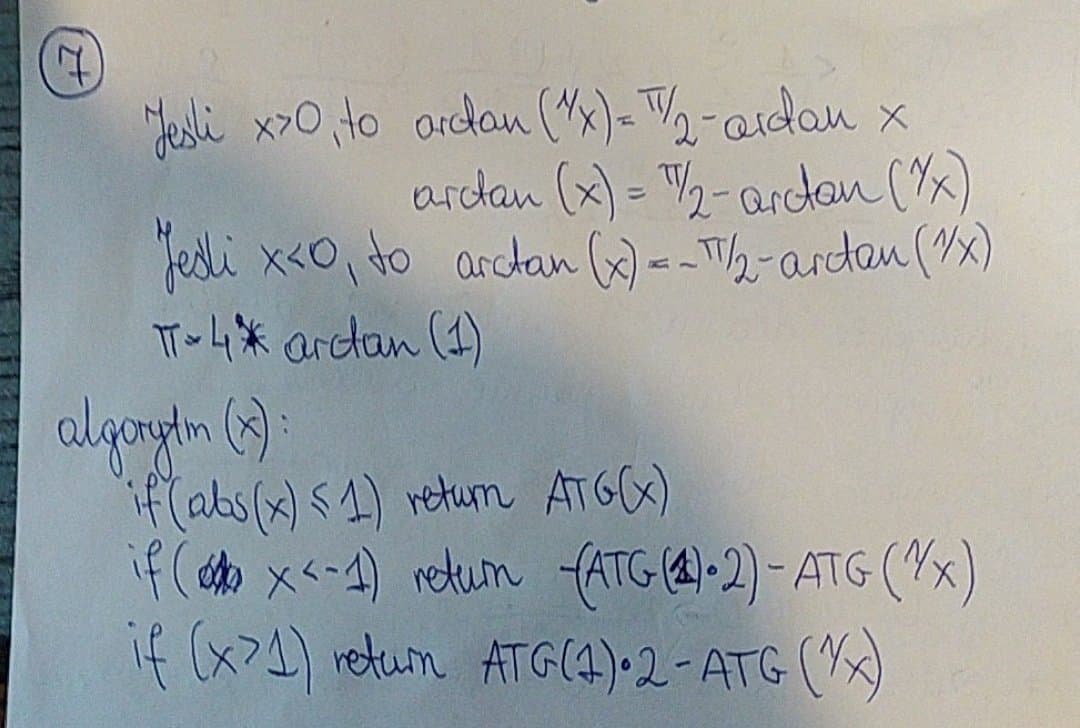 7
Jeśli x>0, to arctan (1/x) = π/2 - arctan x
arctan (x) = π/2 - arctan (1/x)
Jeśli x<0, to arctan (x) = -π/2 - arctan (1/x)
π = 4 * arctan (1)
algorytm (x):
if (abs(x) ≤ 1) return ATG(x)
if ( x < -1) return -(ATG(1)·2) - ATG (1/x)
if (x > 1) return ATG(1)·2 - ATG (1/x)